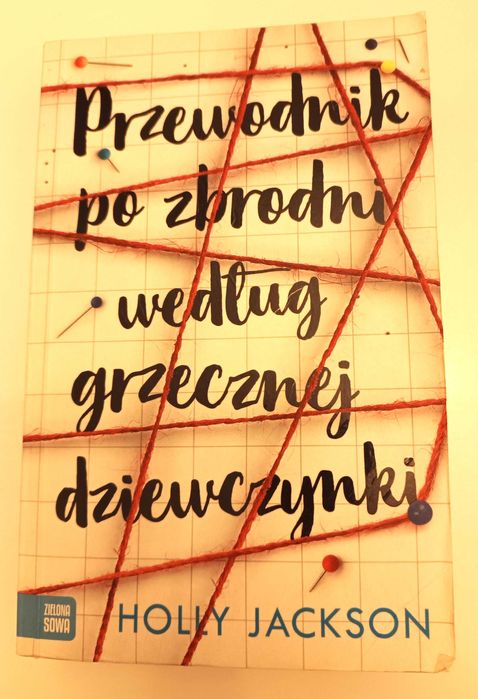 Przewodnik
po zbrodni
według
grzecznej
dziewczynki
ZIELONA
SOWA
HOLLY JACKSON